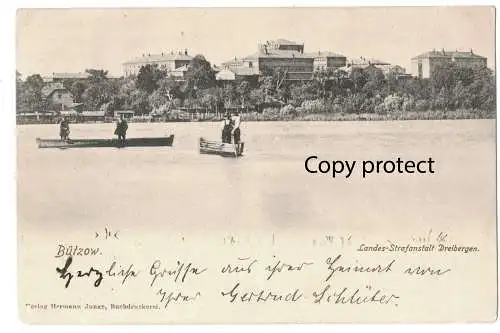 Copy protect
Bützow.
Landes-Strafanstalt Dreibergen.
Herzliche Grüsse aus ihrer Heimat von
Ihrer Gertrud Schlüter.
Verlag Hermann Junge, Buchdruckerei.